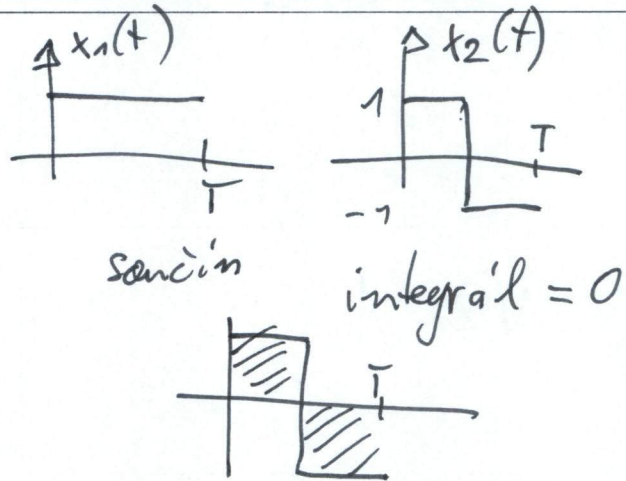 x₁(t)
x₂(t)
1
T
T
-1
součin
integrál = 0
T